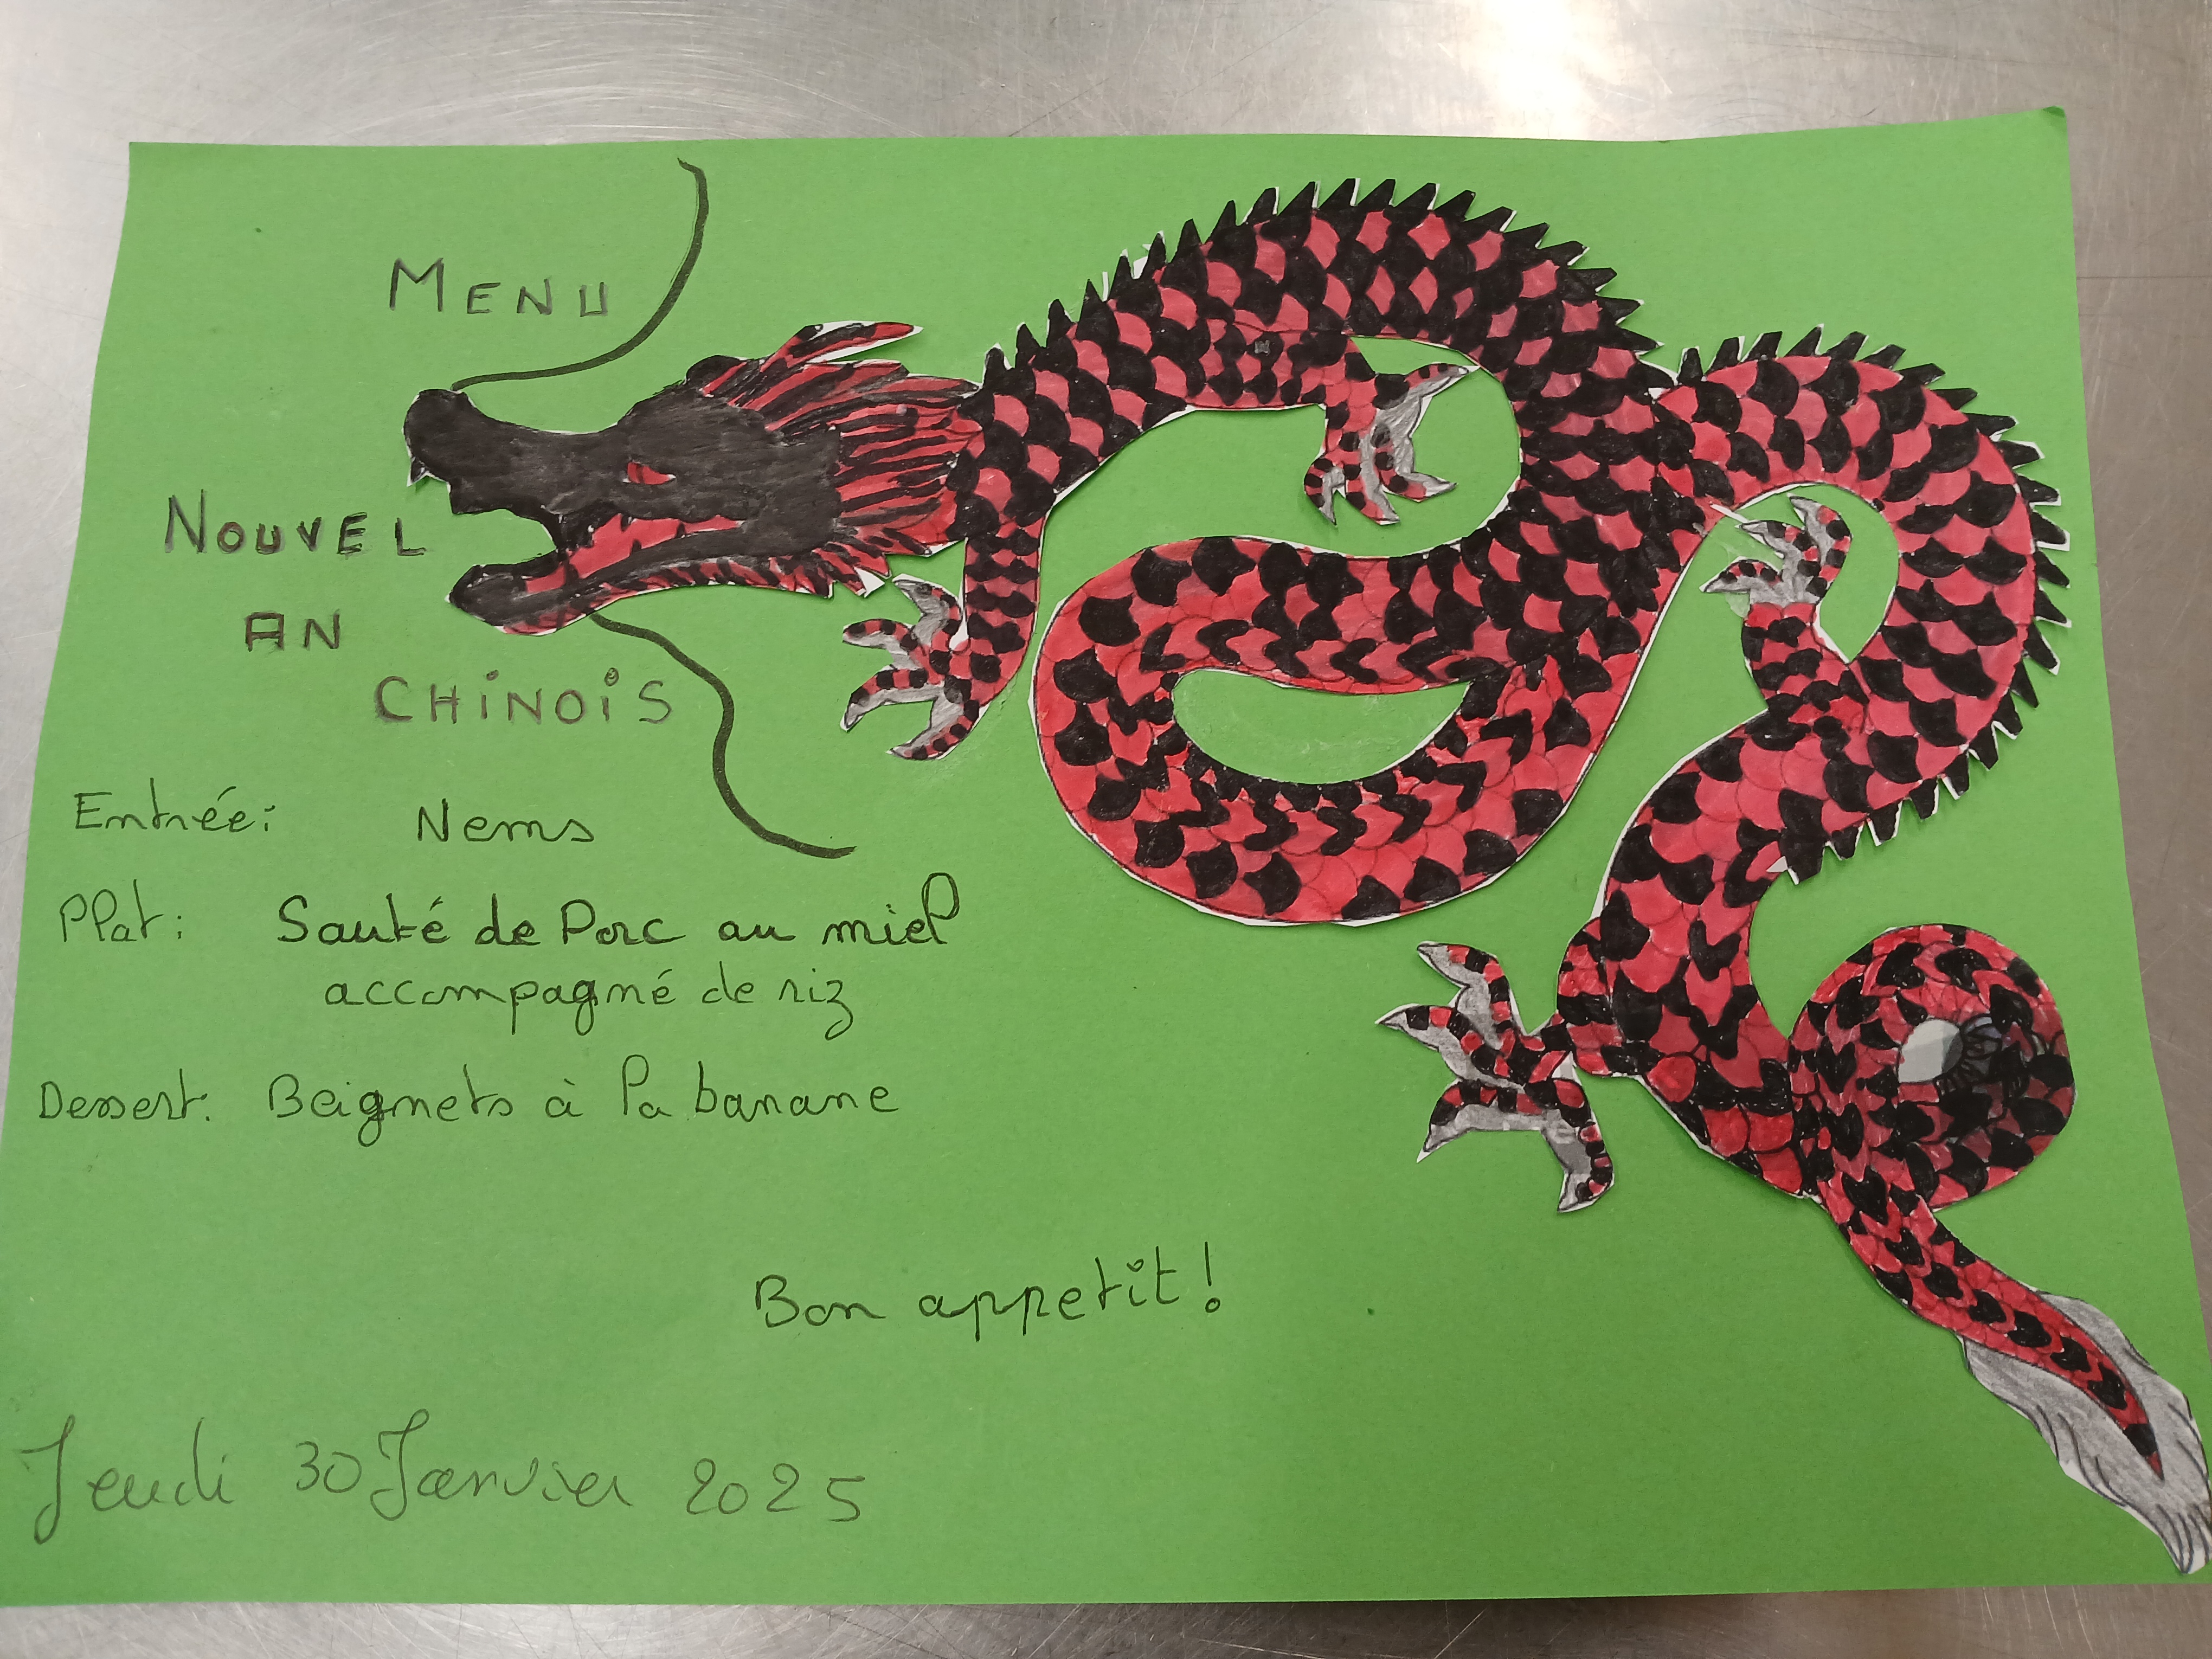 MENU
NOUVEL
AN
CHINOIS
Entrée: Nems
Plat: Sauté de Porc au miel
accompagné de riz
Dessert: Beignets à la banane
Bon appetit!
Jeudi 30 Janvier 2025